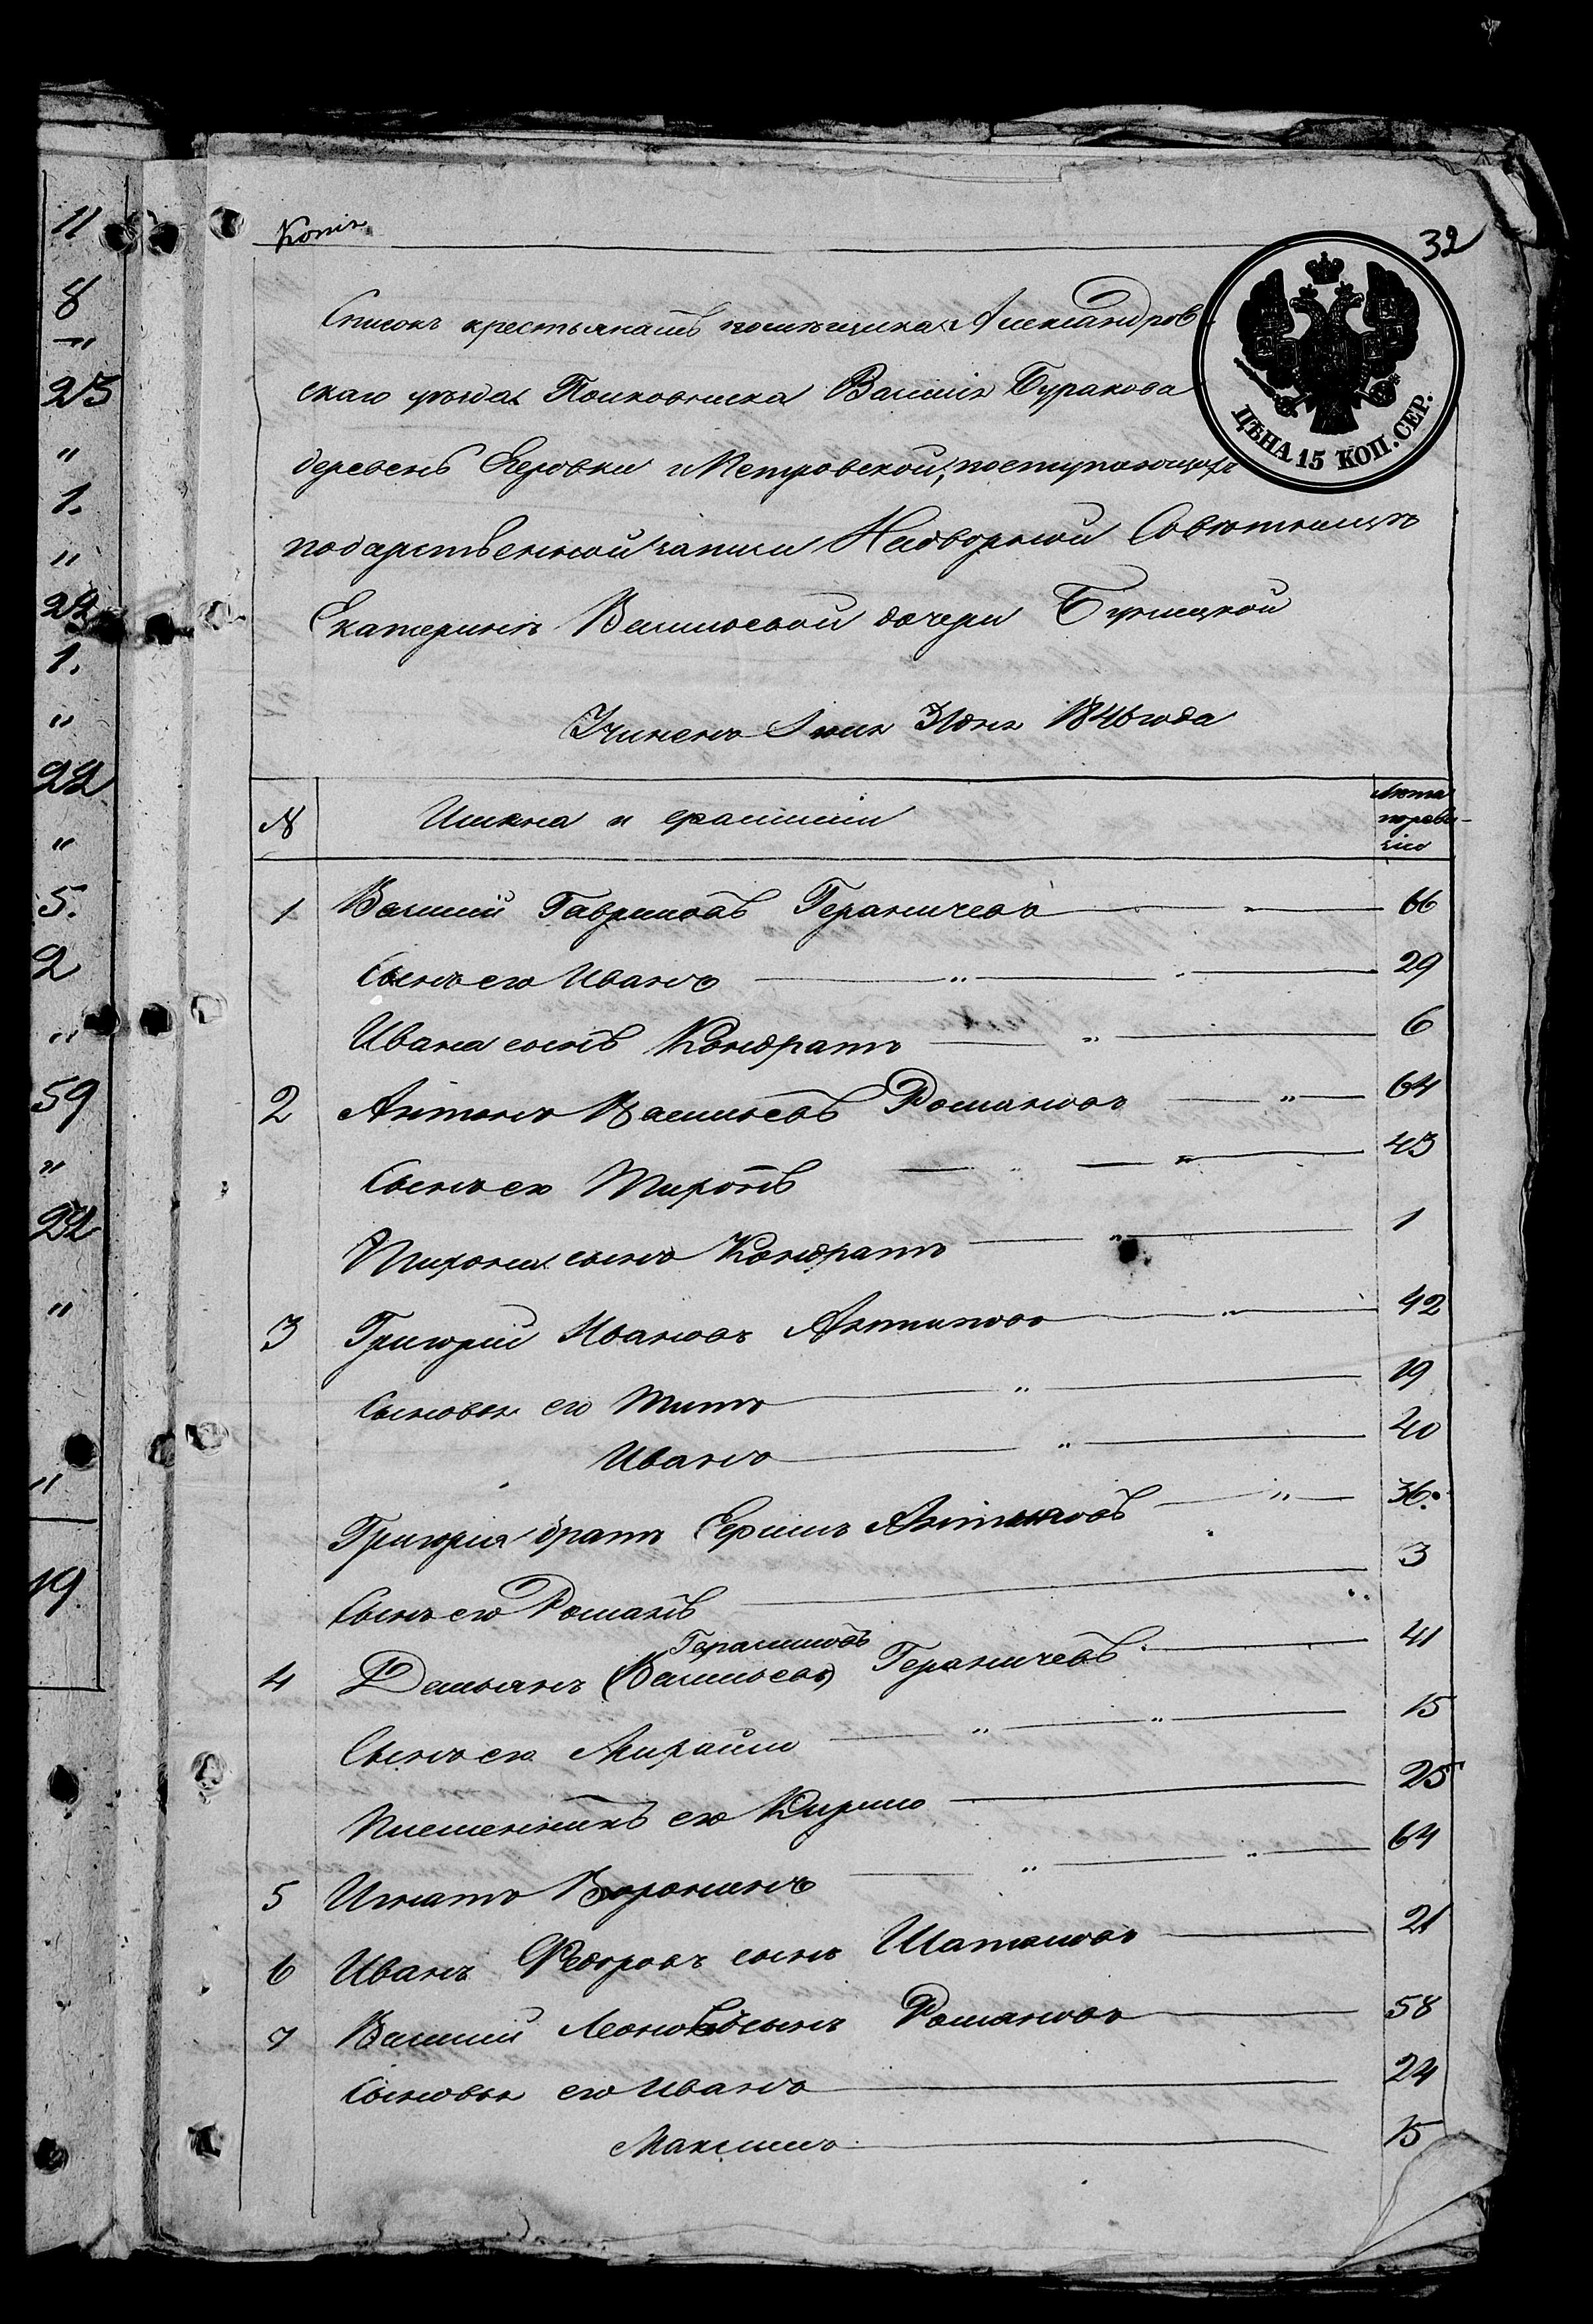 11
8
"
23
"
1.
"
22
1.
"
22
"
5.
2
"
59
"
22
"
"
19
Копія
32
ЦѢНА 15 КОП. СЕР.
Списокъ крестьянамъ помѣщика Александров
скаго уѣзда Полковника Василія Буракова
деревень Егоровки и Петровской, поступающихъ
по дарственной записи Надворной Совѣтницѣ
Екатеринѣ Васильевой дочери
Учиненъ Іюля 31 дня 1846 года
№ Имена и фамиліи Лѣта по реви-зіи
1 Василій Гавриловъ Гераничевъ " 66
Сынъ его Иванъ " " 29
Ивана сынъ Кондратъ " 6
2 Антонъ Васильевъ Романовъ " 64
Сынъ его Миронъ " " 43
Мирона сынъ Кондратъ " 1
3 Григорій Ивановъ Антиповъ " 42
Сыновья его Титъ " 19
Иванъ " 20
Григорія братъ Ефимъ " 36.
Сынъ его Романъ " 3
Герасимовъ
4 Демьянъ (Васильевъ) Гераничевъ 41
Сынъ его " " 15
Племянникъ его Кирило 25
5 Игнатъ Воронинъ " " 64
6 Иванъ Федоровъ сынъ Шаталовъ 21
7 Василій сынъ Романовъ 58
Сыновья его Иванъ 24
Максимъ 15